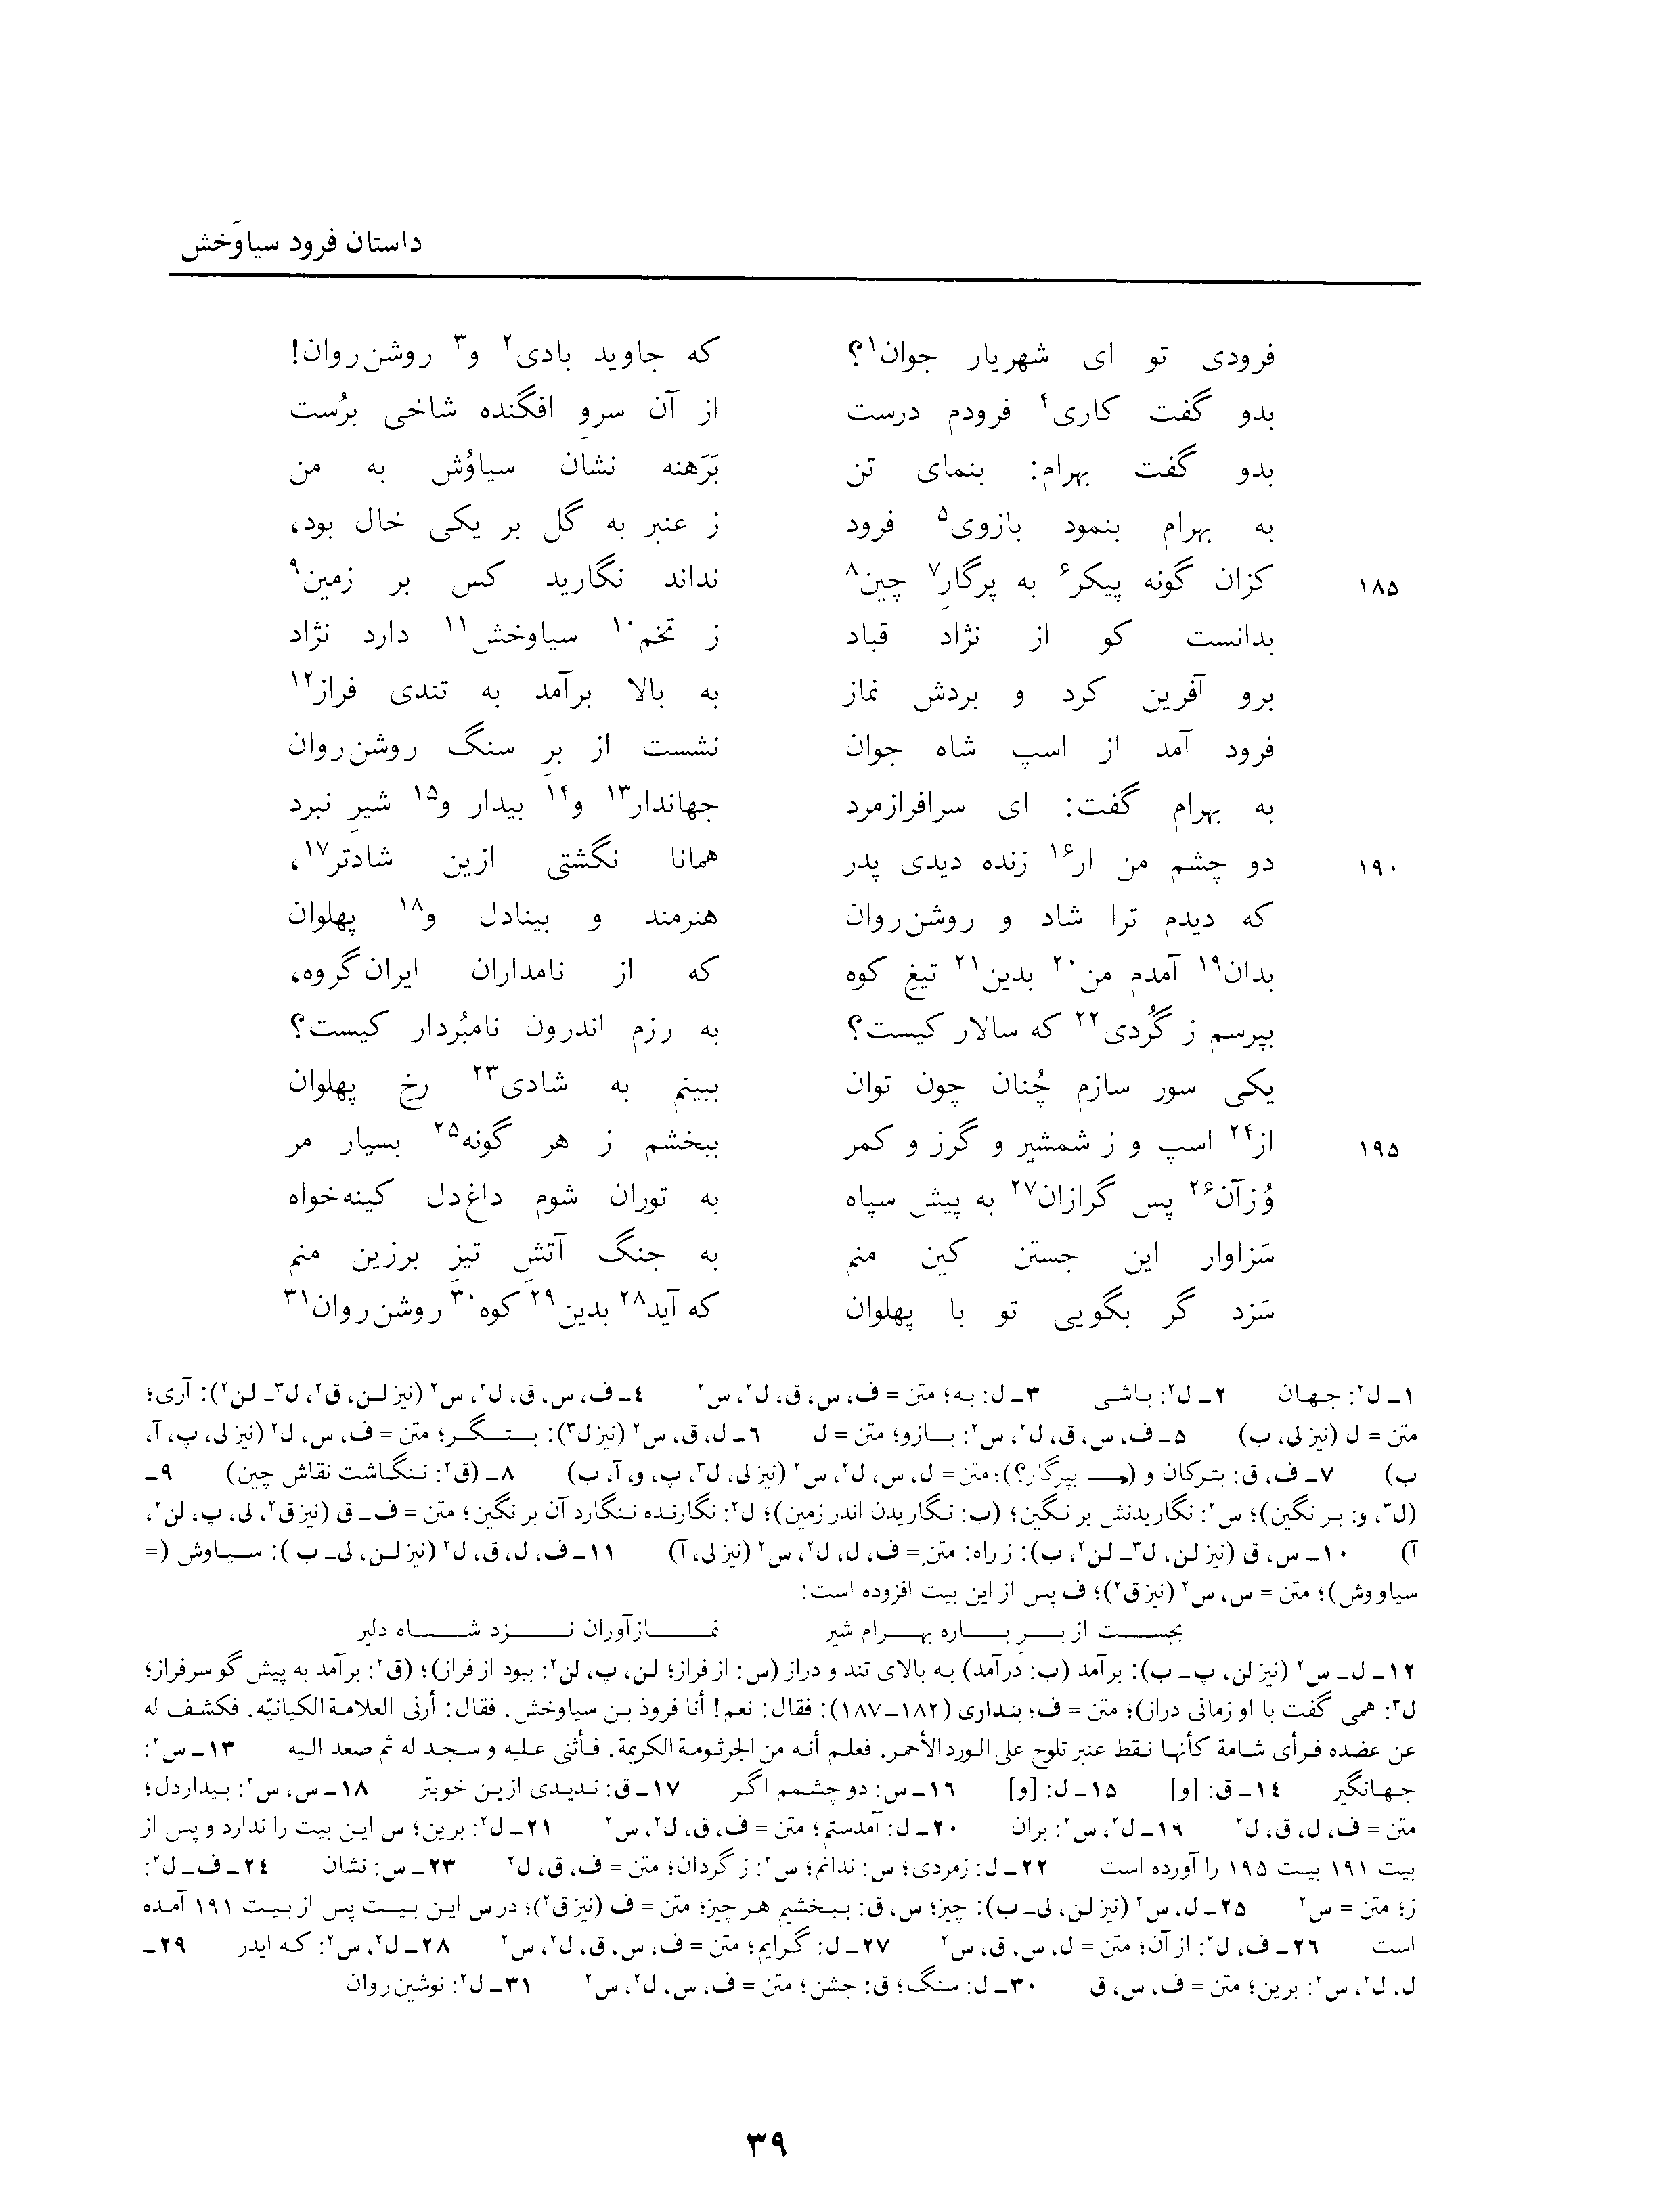 داستان فرود سیاوَخش
فرودی تو ای شهریار جوان۱؟ که جاوید بادی۲ و۳ روشن‌روان!
بدو گفت کاری۴ فرودم درست از آن سروِ افگنده شاخی برُست
بدو گفت بهرام: بنمای تن بَرَهنه نشان سیاوُش به من
به بهرام بنمود بازوی۵ فرود ز عنبر به گل بر یکی خال بود،
۱۸۵ کزان گونه پیکر۶ به پرگارِ۷ چین۸ نداند نگارید کس بر زمین۹
بدانست کو از نژاد قباد ز تخم۱۰ سیاوخش۱۱ دارد نژاد
برو آفرین کرد و بردش نماز به بالا برآمد به تندی فراز۱۲
فرود آمد از اسپ شاه جوان نشست از برِ سنگ روشن‌روان
به بهرام گفت: ای سرافرازمرد جهاندار۱۳ و۱۴ بیدار و۱۵ شیرِ نبرد
۱۹۰ دو چشم من ار۱۶ زنده دیدی پدر همانا نگشتی ازین شادتر۱۷،
که دیدم ترا شاد و روشن‌روان هنرمند و بینادل و۱۸ پهلوان
بدان۱۹ آمدم من۲۰ بدین۲۱ تیغِ کوه که از نامداران ایران‌گروه،
بپرسم ز گُردی۲۲ که سالار کیست؟ به رزم اندرون نامبُردار کیست؟
یکی سور سازم چُنان چون توان ببینم به شادی۲۳ رخِ پهلوان
۱۹۵ از۲۴ اسپ و ز شمشیر و گرز و کمر ببخشم ز هر گونه۲۵ بسیار مر
وُزآن۲۶ پس گرازان۲۷ به پیش سپاه به توران شوم داغ‌دل کینه‌خواه
سَزاوار این جستن کین منم به جنگ آتشِ تیزِ برزین منم
سَزد گر بگویی تو با پهلوان که آید۲۸ بدین۲۹ کوه۳۰ روشن‌روان۳۱
۱ـ ل۲: جهان ۲ـ ل۲: باشی ۳ـ ل: به؛ متن = ف، س، ق، ل۲، س۲ ۴ـ ف، س، ق، ل۲، س۲ (نیز لن، ق۲، ل۳ـ لن۲): آری؛
متن = ل (نیز لی، ب) ۵ـ ف، س، ق، ل۲، س۲: بازو؛ متن = ل ۶ـ ل، ق، س۲ (نیز ل۳): بتگر؛ متن = ف، س، ل۲ (نیز لی، پ، آ،
ب) ۷ـ ف، ق: بترکان و (ــ بپرگار؟)؛ متن = ل، س، ل۲، س۲ (نیز لی، ل۳، پ، و، آ، ب) ۸ـ (ق۲: ننگاشت نقاش چین) ۹ـ
(ل۳، و: بر نگین)؛ س۲: نگاریدنش بر نگین؛ (ب: نگاریدن اندر زمین)؛ ل۲: نگارنده ننگارد آن بر نگین؛ متن = ف ـ ق (نیز ق۲، لی، پ، لن۲،
آ) ۱۰ـ س، ق (نیز لن، ل۳ـ لن۲، ب): ز راه: متن = ف، ل، ل۲، س۲ (نیز لی، آ) ۱۱ـ ف، ل، ق، ل۲ (نیز لن، لی ـ ب): سیاوش (=
سیاووش)؛ متن = س، س۲ (نیز ق۲)؛ ف پس از این بیت افزوده است:
بجست از برِ باره بهرام شیر نمازآوران نزد شاه دلیر
۱۲ـ ل ـ س۲ (نیز لن، پ ـ ب): برآمد (ب: درآمد) به بالای تند و دراز (س: از فراز؛ لن، پ، لن۲: ببود از فراز)؛ (ق۲: برآمد به پیش گو سرفراز؛
ل۳: همی گفت با او زمانی دراز)؛ متن = ف؛ بنداری (۱۸۲ـ۱۸۷): فقال: نعم! أنا فروذ بن سیاوخش. فقال: أرنی العلامة الکیانیّه. فکشف له
عن عضده فرأی شامة کأنها نقط عنبر تلوح علی الورد الأحمر. فعلم أنه من الجرثومة الکریمة. فأثنی علیه و سجد له ثم صعد الیه ۱۳ـ س۲:
جهانگیر ۱۴ـ ق: [و] ۱۵ـ ل: [و] ۱۶ـ س: دو چشمم اگر ۱۷ـ ق: ندیدی ازین خوبتر ۱۸ـ س، س۲: بیداردل؛
متن = ف، ل، ق، ل۲ ۱۹ـ ل۲، س۲: بران ۲۰ـ ل: آمدستم؛ متن = ف، ق، ل۲، س۲ ۲۱ـ ل۲: برین؛ س این بیت را ندارد و پس از
بیت ۱۹۱ بیت ۱۹۵ را آورده است ۲۲ـ ل: زمردی؛ س: ندانم؛ س۲: ز گردان؛ متن = ف، ق، ل۲ ۲۳ـ س: نشان ۲۴ـ ف ـ ل۲:
ز؛ متن = س۲ ۲۵ـ ل، س۲ (نیز لن، لی ـ ب): چیز؛ س، ق: ببخشیم هر چیز؛ متن = ف (نیز ق۲)؛ در س این بیت پس از بیت ۱۹۱ آمده
است ۲۶ـ ف، ل۲: از آن؛ متن = ل، س، ق، س۲ ۲۷ـ ل: گرایم؛ متن = ف، س، ق، ل۲، س۲ ۲۸ـ ل۲، س۲: که ایدر ۲۹ـ
ل، ل۲، س۲: برین؛ متن = ف، س، ق ۳۰ـ ل: سنگ؛ ق: جشن؛ متن = ف، س، ل۲، س۲ ۳۱ـ ل۲: نوشین‌روان
۳۹